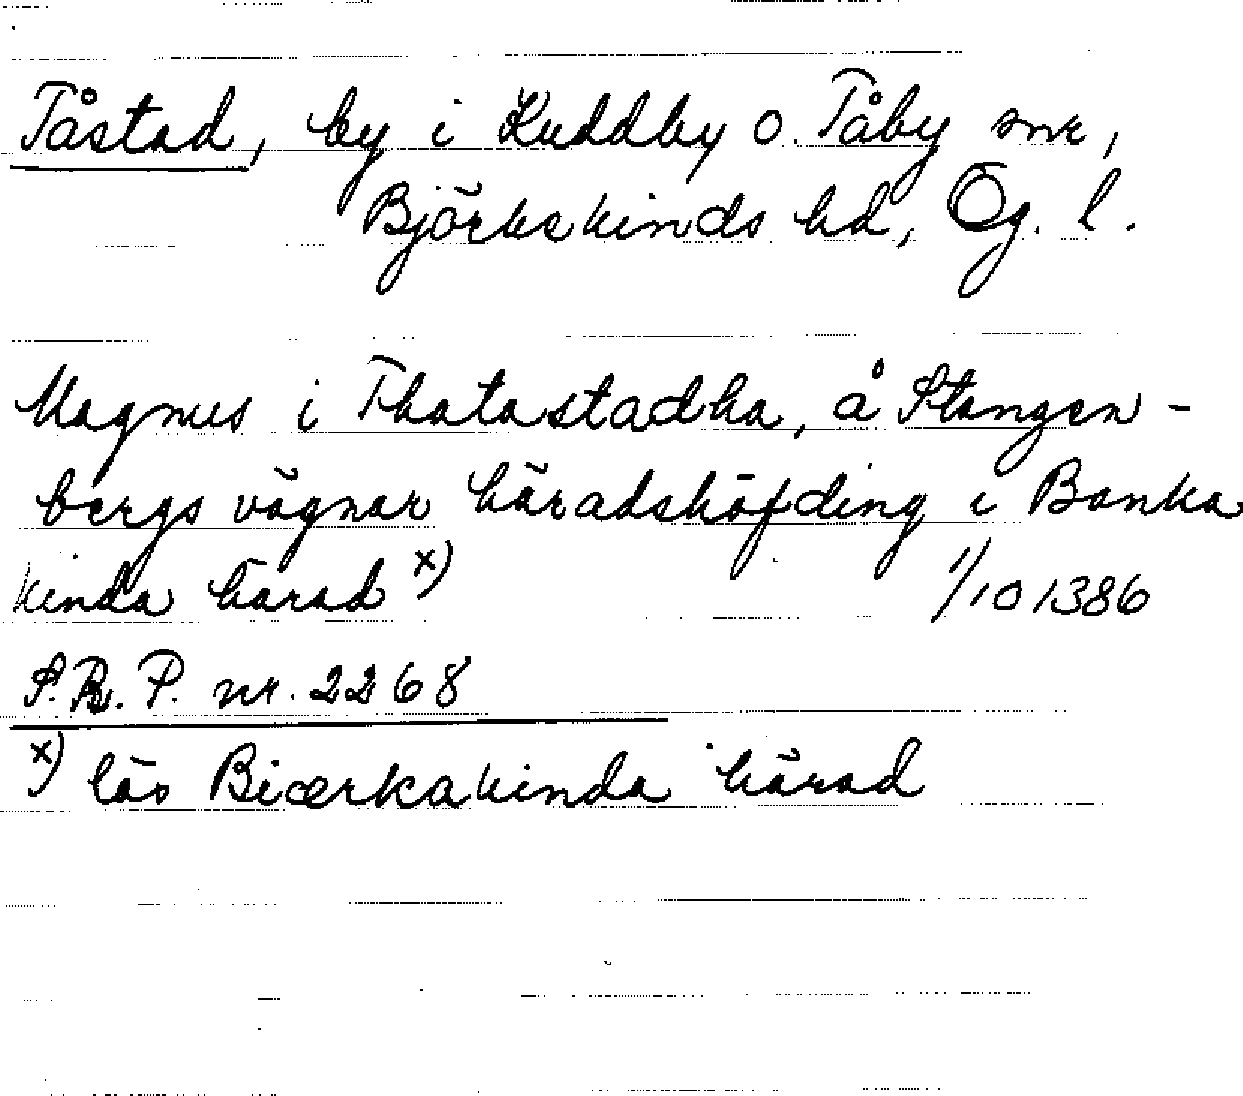 Tåstad, by i Kuddby o. Tåby snr,
Björkekinds hd, Ög. l.
Magnus i Thatastadha, å Stangen-
bergs vägnar häradshöfding i Banka
kinda härad x) 1/10 1386
S.R.P. nr. 2268
x) läs Biærkakinda härad